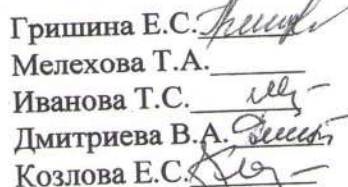 Гришина Е.С.
Мелехова Т.А.
Иванова Т.С.
Дмитриева В.А.
Козлова Е.С.